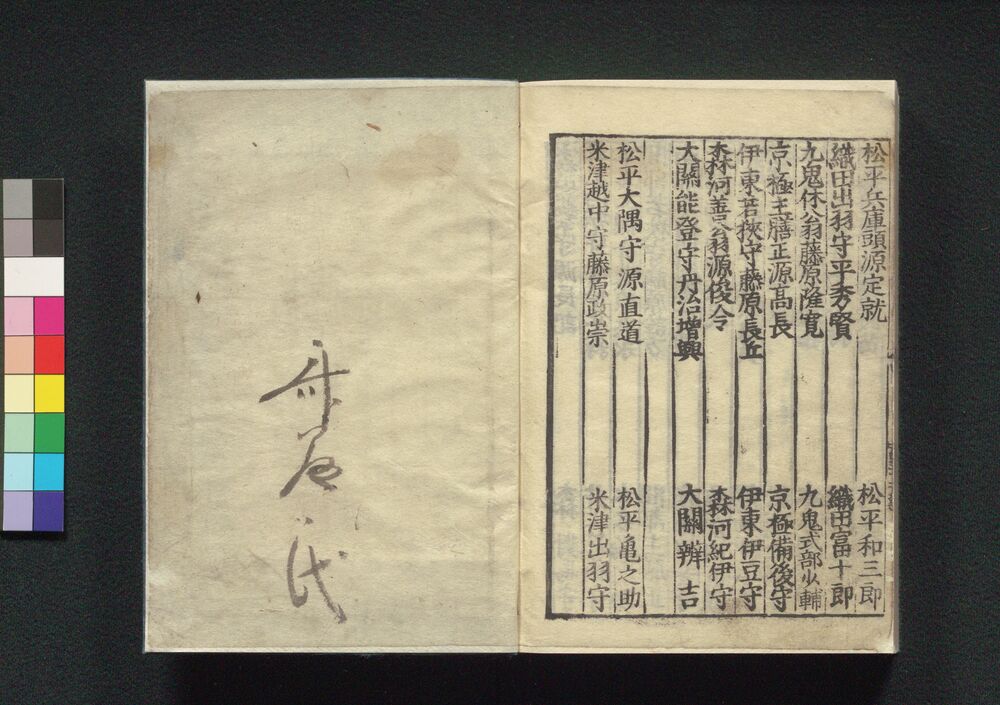 松平兵庫頭源定就 松平和三郎
織田出羽守平秀賢 織田富十郎
九鬼休翁藤原隆寛 九鬼式部少輔
京極主膳正源高長 京極備後守
伊東若狭守藤原長丘 伊東伊豆守
森河善翁源俊令 森河紀伊守
大關能登守丹治增興 大關辨吉
松平大隅守源直道 松平亀之助
米津越中守藤原政崇 米津出羽守